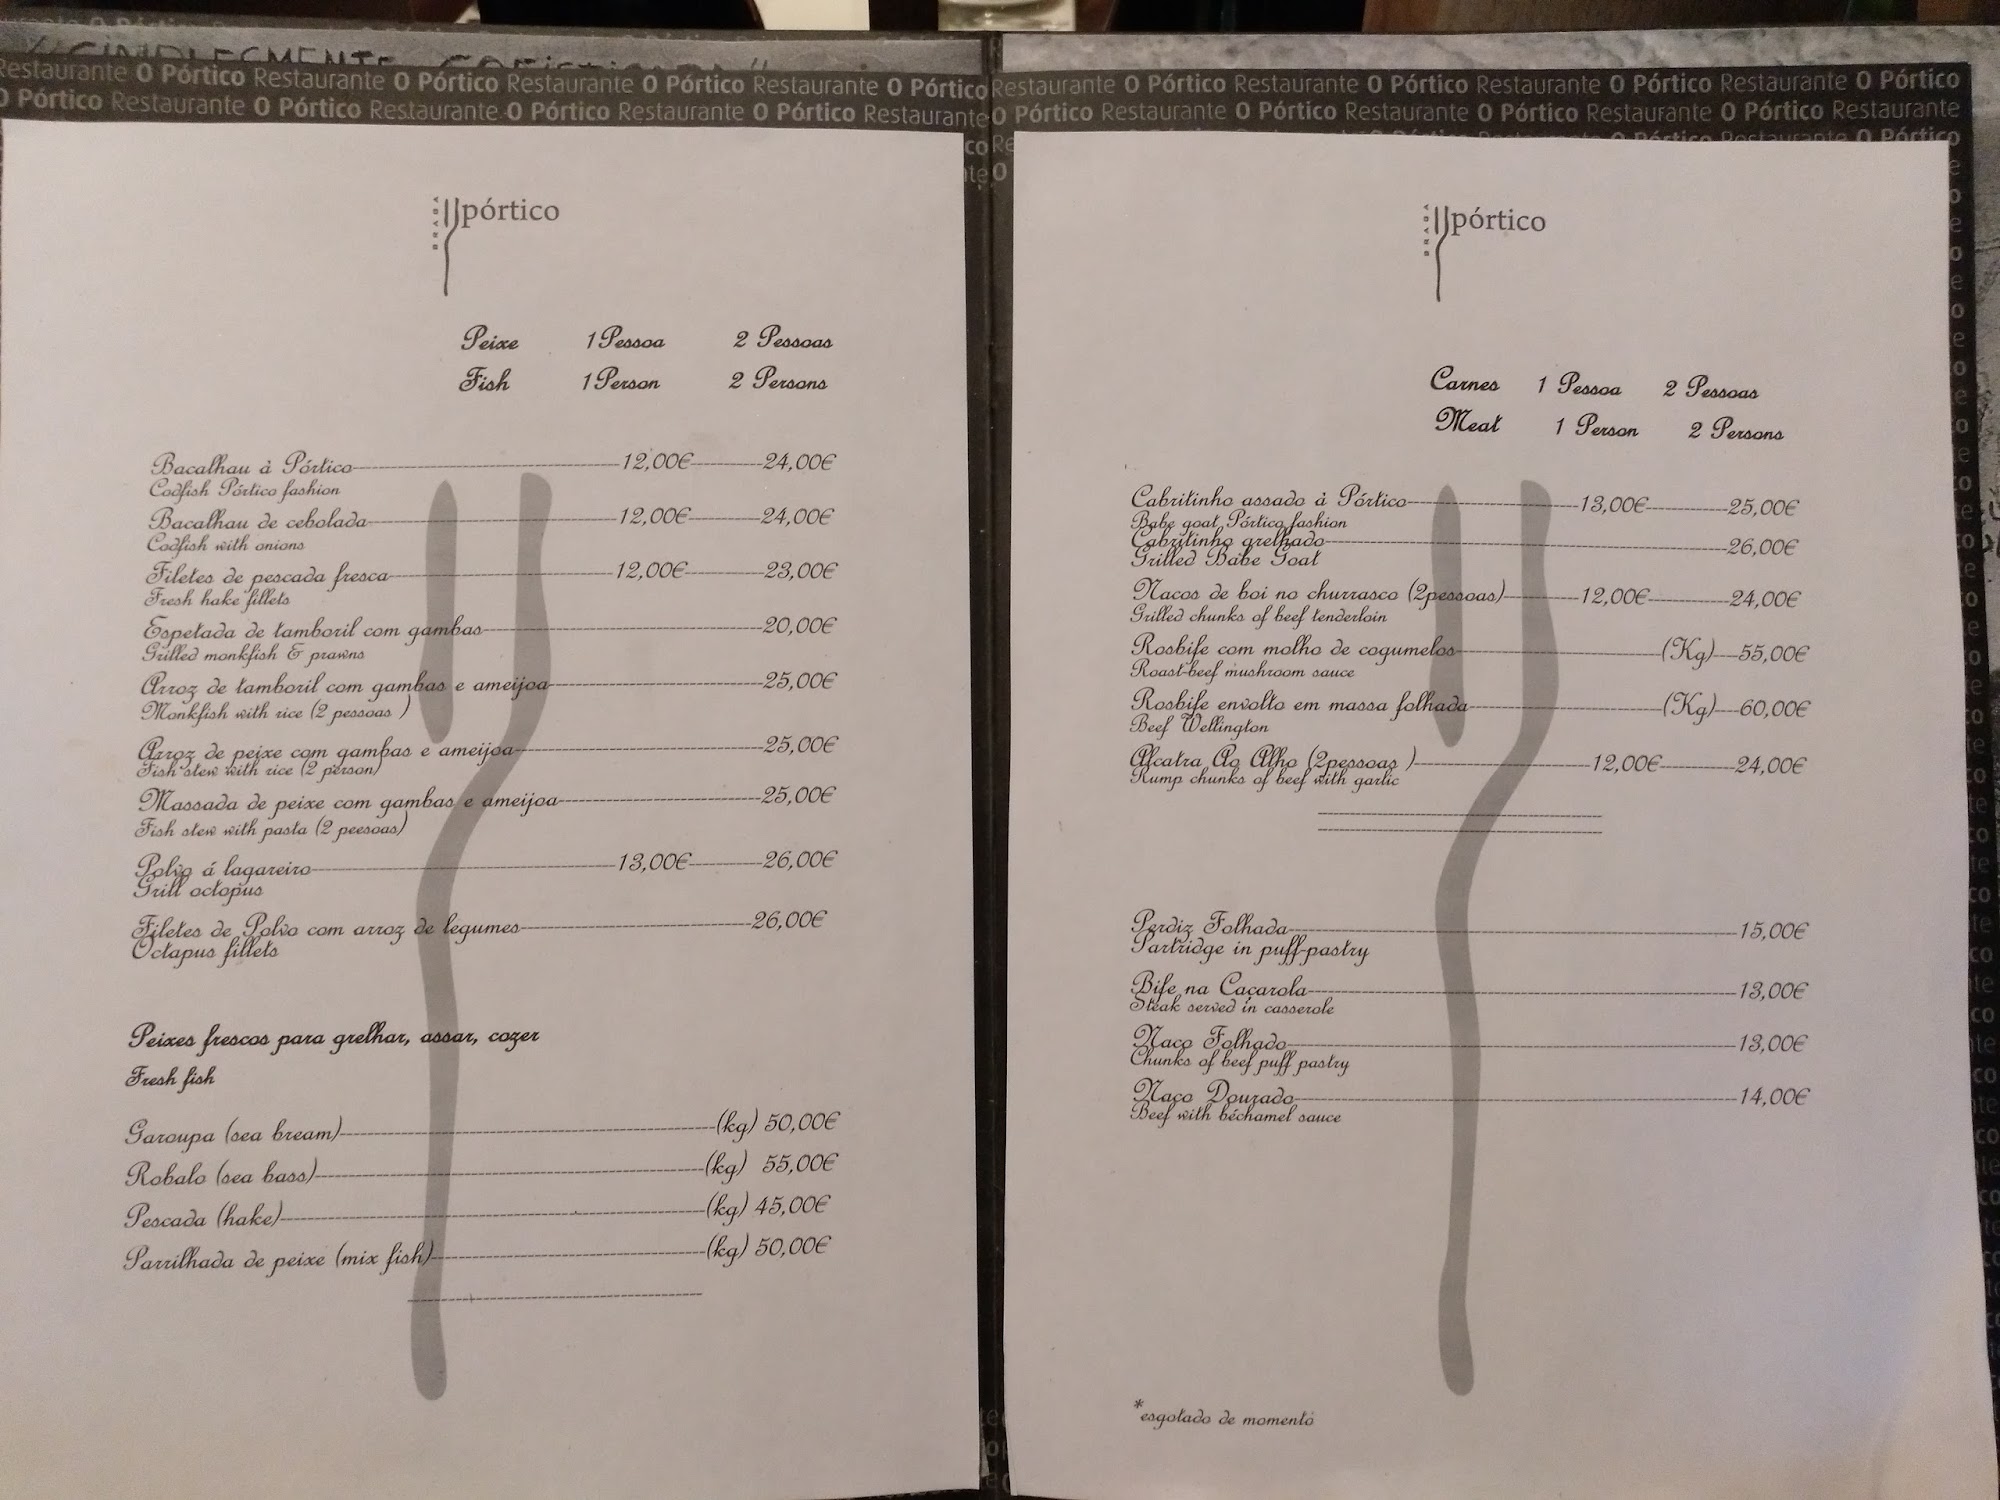 Restaurante O Pórtico Restaurante O Pórtico Restaurante O Pórtico Restaurante O Pórtico
O Pórtico Restaurante O Pórtico Restaurante O Pórtico Restaurante O Pórtico Restaurante
BRAGA
pórtico
Peixe 1 Pessoa 2 Pessoas
Fish 1 Person 2 Persons
Bacalhau à Pórtico 12,00€ 24,00€
Codfish Pórtico fashion
Bacalhau de cebolada 12,00€ 24,00€
Codfish with onions
Filetes de pescada fresca 12,00€ 23,00€
Fresh hake fillets
Espetada de tamboril com gambas 20,00€
Grilled monkfish & prawns
Arroz de tamboril com gambas e ameijoa 25,00€
Monkfish with rice (2 pessoas )
Arroz de peixe com gambas e ameijoa 25,00€
Fish stew with rice (2 person)
Massada de peixe com gambas e ameijoa 25,00€
Fish stew with pasta (2 peesoas)
Polvo á lagareiro 13,00€ 26,00€
Grill octopus
Filetes de Polvo com arroz de legumes 26,00€
Octapus fillets
Peixes frescos para grelhar, assar, cozer
Fresh fish
Garoupa (sea bream) (kg) 50,00€
Robalo (sea bass) (kg) 55,00€
Pescada (hake) (kg) 45,00€
Parrilhada de peixe (mix fish) (kg) 50,00€
Restaurante O Pórtico Restaurante O Pórtico Restaurante O Pórtico Restaurante O Pórtico
O Pórtico Restaurante O Pórtico Restaurante O Pórtico Restaurante O Pórtico Restaurante
BRAGA
pórtico
Carnes 1 Pessoa 2 Pessoas
Meat 1 Person 2 Persons
Cabritinho assado à Pórtico 13,00€ 25,00€
Babe goat Pórtico fashion
Cabritinho grelhado 26,00€
Grilled Babe Goat
Nacos de boi no churrasco (2pessoas) 12,00€ 24,00€
Grilled chunks of beef tenderloin
Rosbife com molho de cogumelos (Kg) 55,00€
Roast-beef mushroom sauce
Rosbife envolto em massa folhada (Kg) 60,00€
Beef Wellington
Alcatra Ao Alho (2pessoas ) 12,00€ 24,00€
Rump chunks of beef with garlic
Perdiz Folhada 15,00€
Partridge in puff-pastry
Bife na Caçarola 13,00€
Steak served in casserole
Naco Folhado 13,00€
Chunks of beef puff pastry
Naco Dourado 14,00€
Beef with béchamel sauce
*esgotado de momento